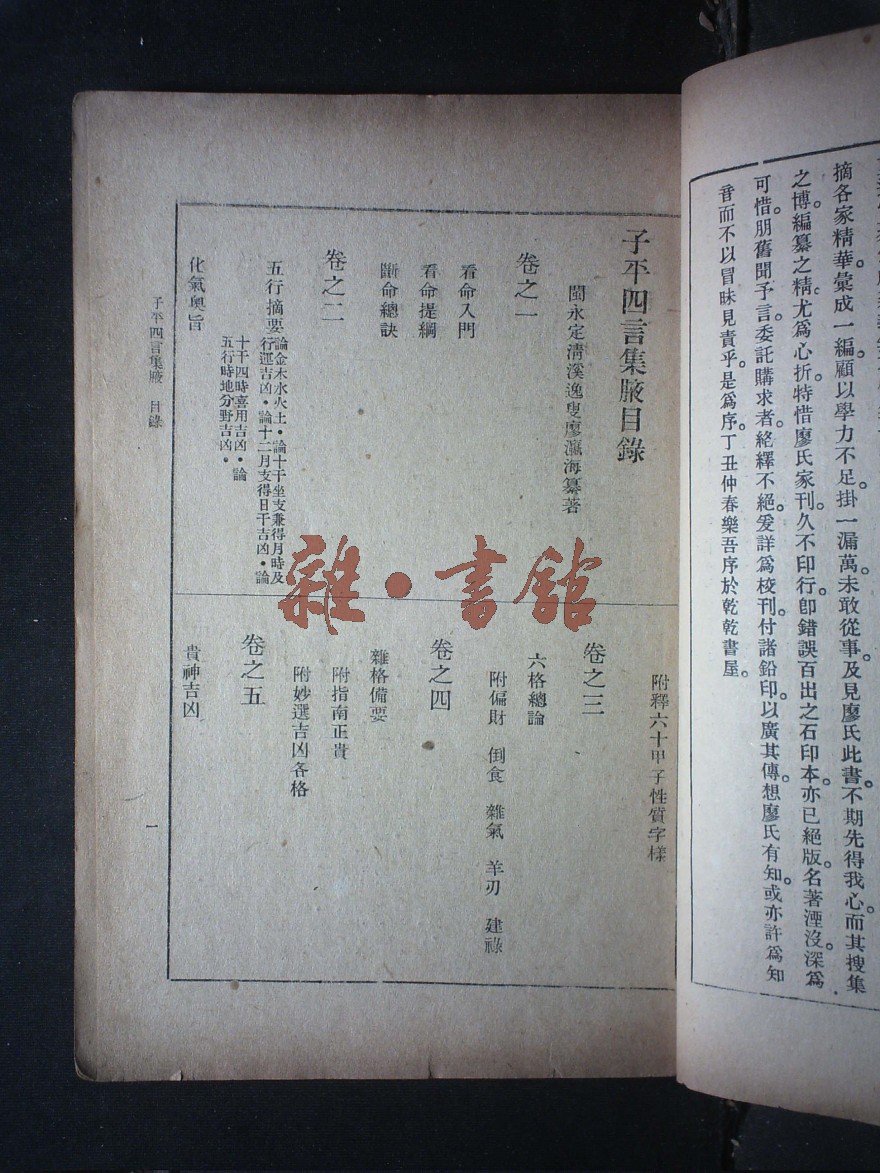 摘各家精華。彙成一編。顧以學力不足。掛一漏萬。未敢從事。及見廖氏此書。不期先得我心。而其搜集
之博。編纂之精。尤爲心折。特惜廖氏家刊。久不印行。卽錯誤百出之石印本。亦已絕版。名著湮沒。深爲
可惜。朋舊聞予言。委託購求者。絡繹不絕。爰詳爲校刊。付諸鉛印。以廣其傳。想廖氏有知。或亦許爲知
音而不以冒昧見責乎。是爲序。丁丑仲春樂吾序於乾乾書屋。
子平四言集腋目錄
閩永定淸溪逸叟廖瀛海纂著
卷之一
看命入門
看命提綱
斷命總訣
卷之二
五行摘要 論金木水火土・論十干坐支兼得月時及
行運吉凶・論十二月支得日干吉凶・論
十干四時喜用吉凶・論
五行時地分野吉凶・
化氣奧旨
附釋六十甲子性質字樣
卷之三
六格總論
附偏財 倒食 雜氣 羊刃 建祿
卷之四
雜格備要
附指南正貴
附妙選吉凶各格
卷之五
貴神吉凶
子平四言集腋 目錄
一
雜・書館